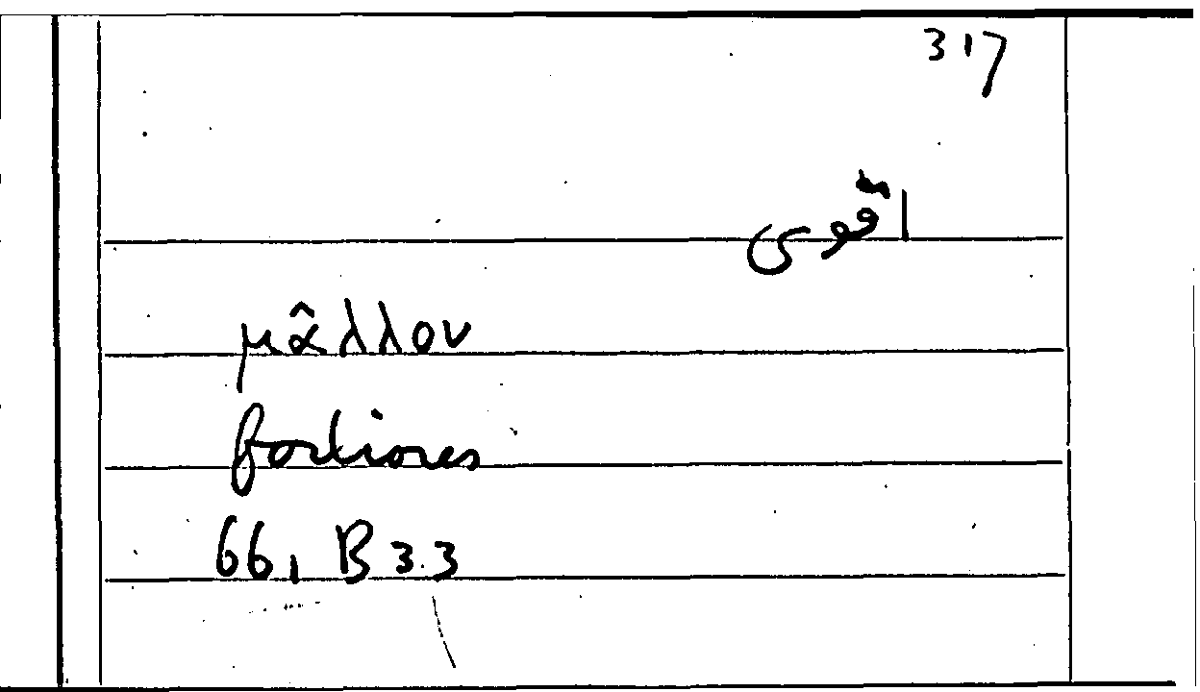 317
اقوى
μᾶλλον
fortiores
66, B 3.3